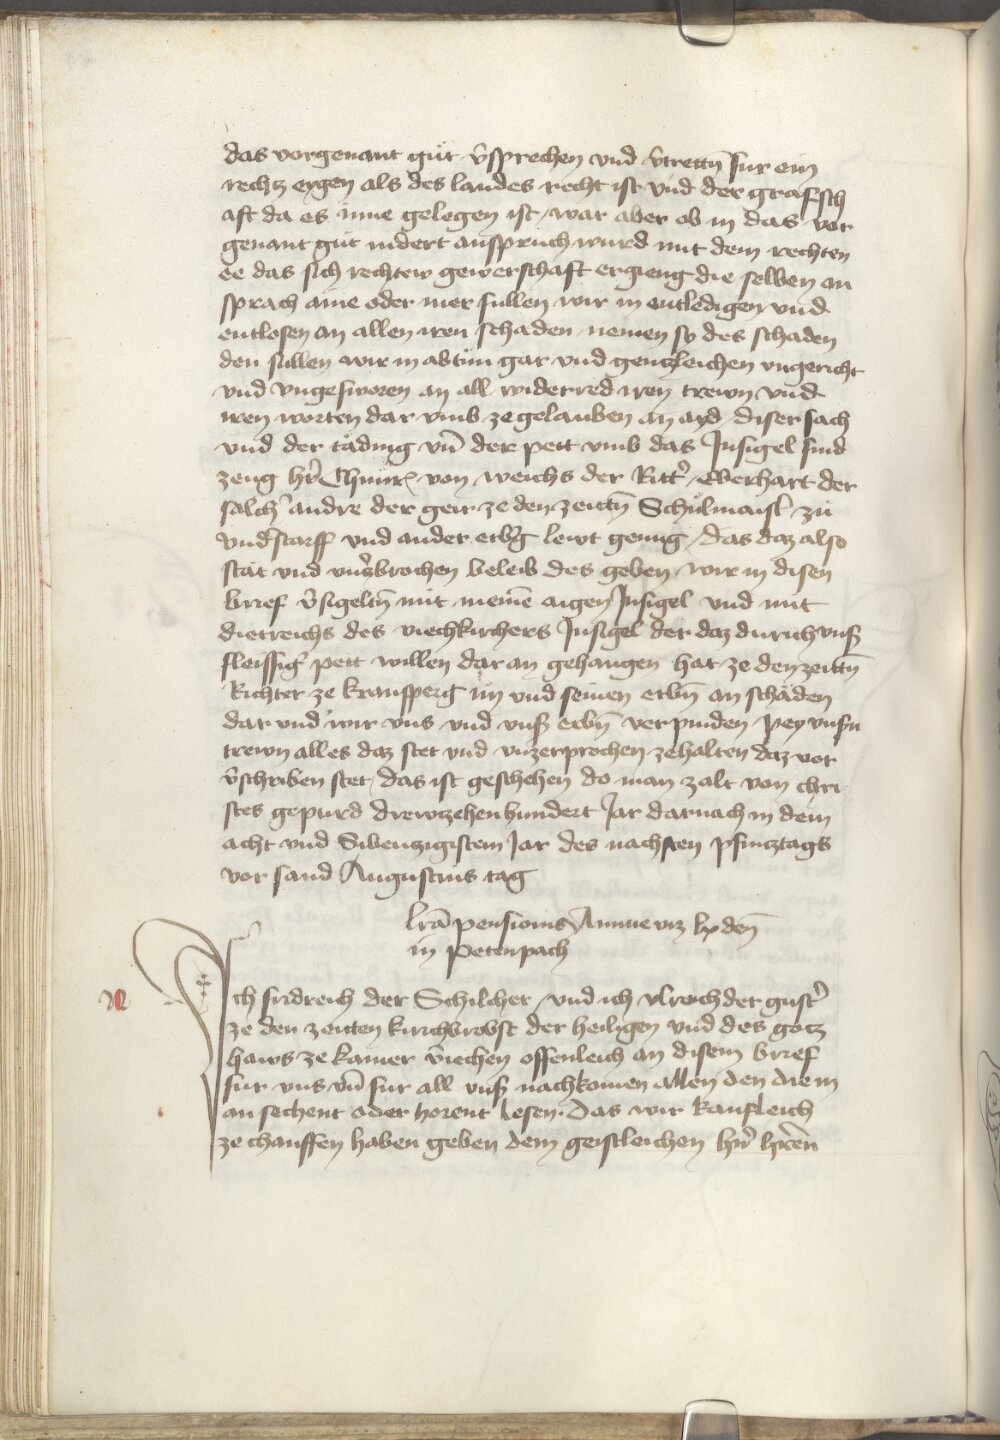 das vorgenant gůt v̄sprechen vnd v̄trettn̄ fur ein
rechtz eygen als des landes recht ist vnd der grafsch
aft da es inne gelegen ist / war aber ob in das vor
genant gůt indert anspruch wurd mit dem rechten
ee das sich rechtew gewerschaft ergieng die selben an
sprach aine oder mer sullen wir in entledigen vnd
entlosen an allen iren schaden / nemen sy des schaden
den sullen wir in abtůn gar vnd gentzleichen vngericht
vnd vngesworen an all widerred iren trewn vnd
iren worten dar vmb ze gelauben an ayd / diser sach
vnd der tåding vn̄ der pett vmb das Jnsigel sind
zeug hr̄ Chunr. von weichs der Ritt' / Eberhart der
salch' andre der geir ze den zeittn̄ Schůlmaist' zů
vnd'starff vnd ander erb'g lewt genug / das daz also
stät vnd vnv̄brochen beleib des geben wir in disen
brief v̄sigeltn̄ mit meinē aigen Jnsigel vnd mit
dietreichs des viechkirchers Jnsigel der daz durich vnsz
fleissig' pett willen dar an gehangen hat ze den zeittn̄
Richter ze kransperg im vnd seinen erbn̄ an schåden
dar vnd' wir vns vnd vnsz erbn̄ verpinden pey vnszn
trewn alles daz stet vnd vnzerprochen ze halten daz vor
v̄schriben stet / das ist geschehen do man zalt von chri
stes gepurd drewtzehenhundert Jar darnach in dem
acht vnd Sibentzigistem Jar des nachsten pfintztags
vor sand Augustins tag
lrā pensionis Annue vtz lx den̄
in Petenpach
Jch fridreich der Schilcher / vnd ich vlreich der gust'
ze den zeitten kirchbrobst der heiligen vnd des gotz
haws ze kamer v̄iechen offenleich an disem brief
fur vns vn̄ fur all vnsz nachkomen allen den die in
an sechent oder horent lesen. das wir kaufleich
ze chauffen haben geben dem geistleichen hr̄n